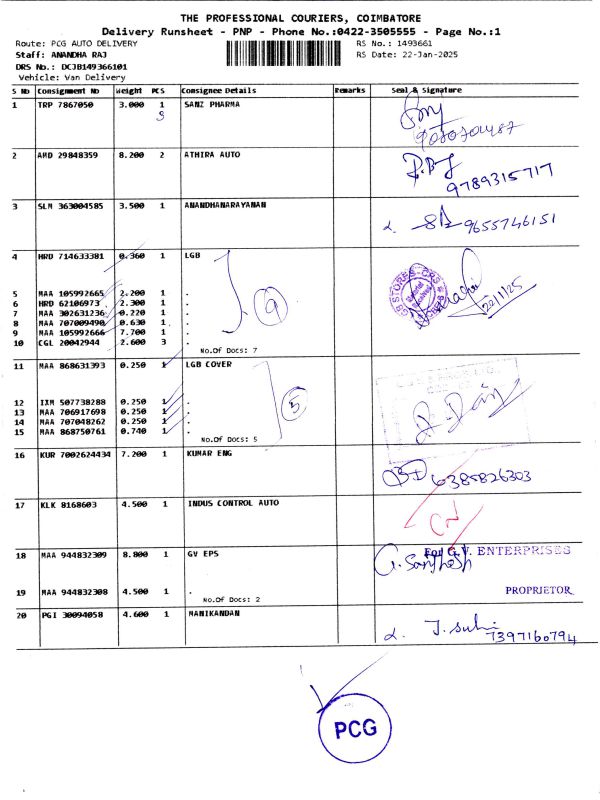 THE PROFESSIONAL COURIERS, COIMBATORE
Delivery Runsheet - PNP - Phone No.:0422-3505555 - Page No.:1
Route: PCG AUTO DELIVERY RS No.: 1493661
Staff: ANANDHA RAJ RS Date: 22-Jan-2025
DRS No.: DCJB149366101
Vehicle: Van Delivery
S No Consignment No Weight PCS Consignee Details Remarks Seal & Signature
1 TRP 7867050 3.000 1 SANZ PHARMA
2 AMD 29848359 8.200 2 ATHIRA AUTO
9789315717
3 SLM 363004585 3.500 1 ANANDHANARAYANAN
9655746151
4 HRD 714633381 0.360 1 LGB
5 MAA 105992665 2.200 1 .
6 HRD 62106973 2.300 1 .
7 MAA 302631236 0.220 1 .
8 MAA 707009490 0.630 1 .
9 MAA 105992666 7.700 1 .
10 CGL 20042944 2.600 3 .
No.Of Docs: 7
9
22/1/25
11 MAA 868631393 0.250 1 LGB COVER
12 IXM 507738288 0.250 1 .
13 MAA 706917698 0.250 1 .
14 MAA 707048262 0.250 1 .
15 MAA 868750761 0.740 1 .
No.Of Docs: 5
5
16 KUR 7002624434 7.200 1 KUMAR ENG
6385826303
17 KLK 8168603 4.500 1 INDUS CONTROL AUTO
18 MAA 944832309 8.800 1 GV EPS
For G.V. ENTERPRISES
G. Santhosh
19 MAA 944832308 4.500 1 .
No.Of Docs: 2
PROPRIETOR
20 PGI 30094058 4.600 1 MANIKANDAN
7397160794
PCG